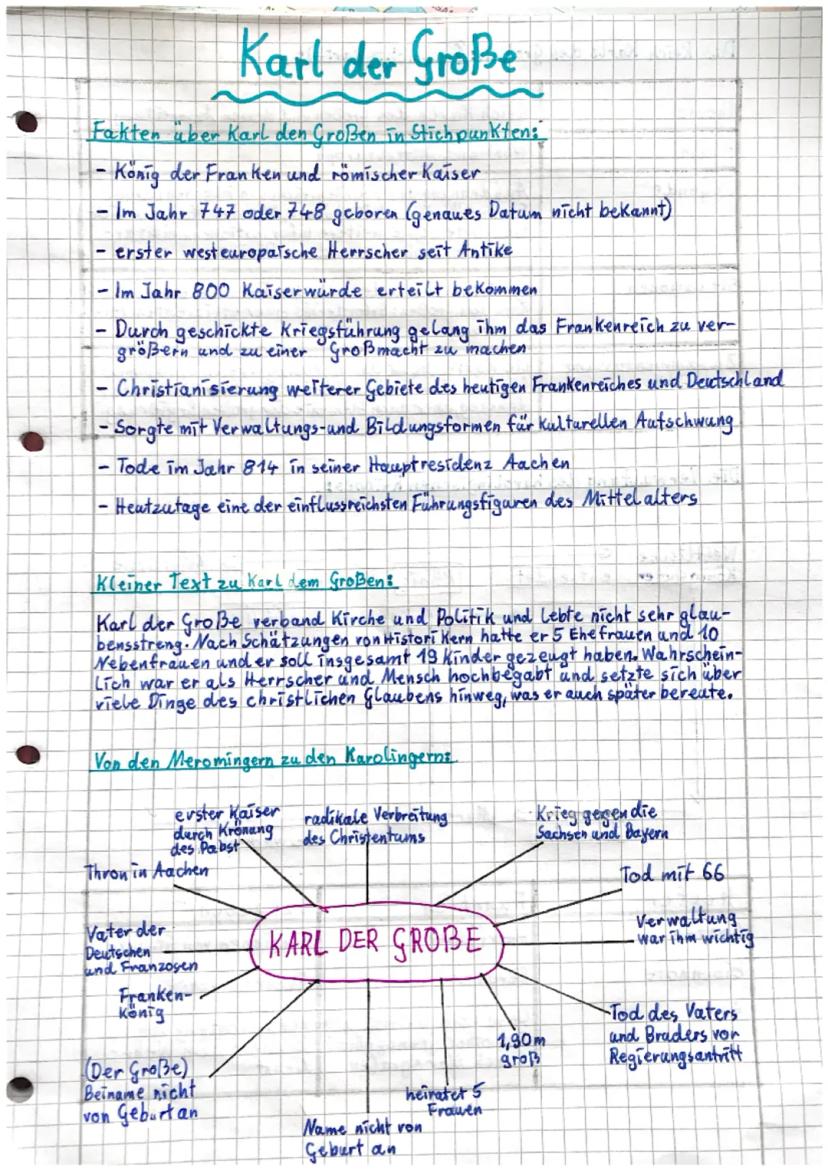 Karl der Große
Fakten über Karl den Großen in Stichpunkten:
- König der Franken und römischer Kaiser
- Im Jahr 747 oder 748 geboren (genaues Datum nicht bekannt)
- erster westeuropaïsche Herrscher seit Antike
- Im Jahr 800 Kaiserwürde erteilt bekommen
- Durch geschickte Kriegsführung gelang ihm das Frankenreich zu ver-
größern und zu einer Großmacht zu machen
- Christianisierung weiterer Gebiete des heutigen Frankenreiches und Deutschland
- Sorgte mit Verwaltungs-und Bildungsformen für kulturellen Aufschwung
- Tode im Jahr 814 in seiner Hauptresidenz Aachen
- Heutzutage eine der einflussreichsten Führungsfiguren des Mittelalters
Kleiner Text zu Karl dem Großen:
Karl der Große verband Kirche und Politik und lebte nicht sehr glau-
bensstreng. Nach Schätzungen von Historikern hatte er 5 Ehefrauen und 10
Nebenfrauen und er soll insgesamt 19 Kinder gezeugt haben. Wahrschein-
lich war er als Herrscher und Mensch hochbegabt und setzte sich über
viele Dinge des christlichen Glaubens hinweg, was er auch später bereute.
Von den Meromingern zu den Karolingern:
erster Kaiser
durch Krönung
des Pabst
radikale Verbreitung
des Christentums
Krieg gegen die
Sachsen und Bayern
Thron in Aachen
Tod mit 66
Vater der
Deutschen
und Franzosen
KARL DER GROßE
Verwaltung
war ihm wichtig
Franken-
könig
Tod des Vaters
und Bruders vor
Regierungsantritt
1,90m
groß
(Der Große)
Beiname nicht
von Geburt an
heiratet 5
Frauen
Name nicht von
Geburt an